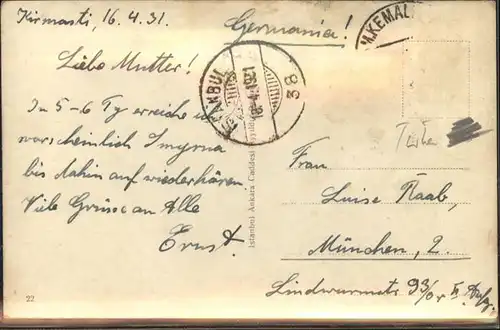 Kirmasti, 16.4.31.
Germania!
M.KEMAL
Liebe Mutter!
ISTANBUL
18-4-1931
38
In 5-6 Tg erreiche ich
warscheinlich Smyrna
bis dahin auf wiederhören
Viele Grüsse an Alle
Ernst.
Istanbul Ankara Caddesi
Türkei
Frau
Luise Raab,
München, 2.
Lindwurmstr 93/0r II. Aufg.
22